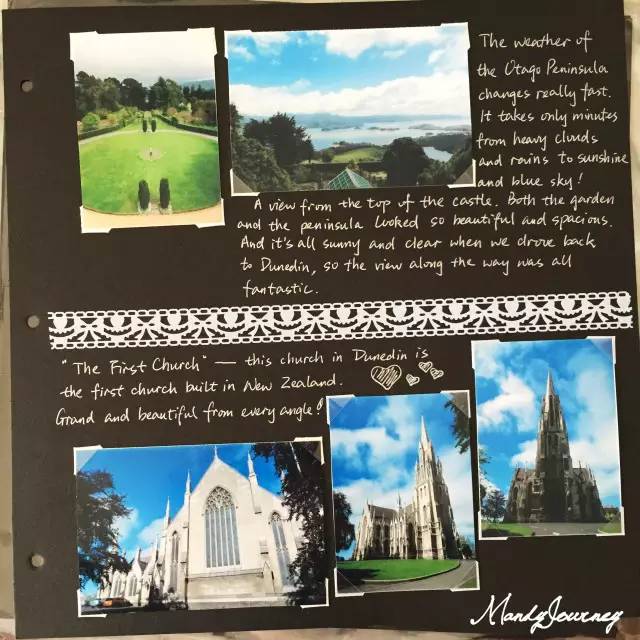 The weather of
the Otago Peninsula
changes really fast.
It takes only minutes
from heavy clouds
and rains to sunshine
and blue sky!
A view from the top of the castle. Both the garden
and the peninsula looked so beautiful and spacious.
And it's all sunny and clear when we drove back
to Dunedin, so the view along the way was all
fantastic.
"The First Church" — this church in Dunedin is
the first church built in New Zealand.
Grand and beautiful from every angle!
MandyJourney